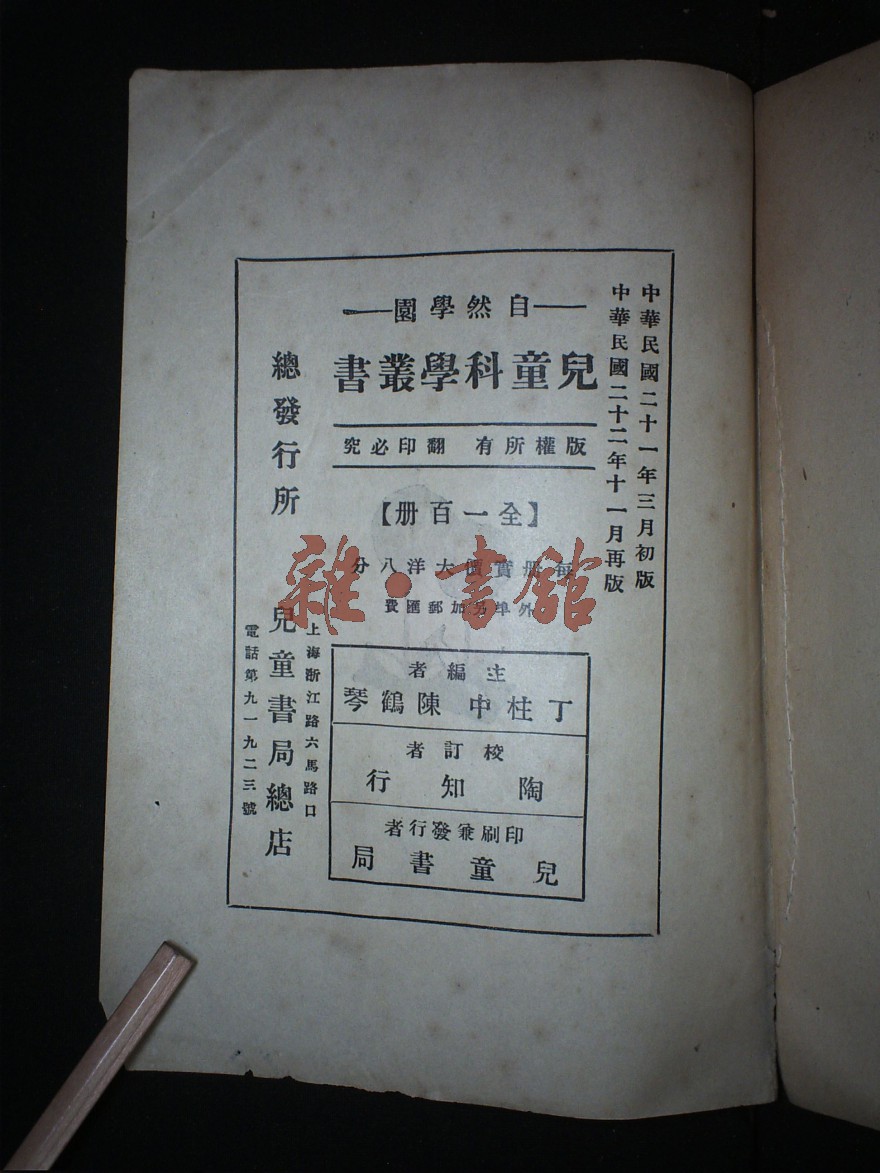 中華民國二十一年三月初版
中華民國二十二年十一月再版
自然學園
兒童科學叢書
版權所有 翻印必究
【全一百册】
每册實價大洋八分
外埠另加郵匯費
主編者
丁柱中 陳鶴琴
校訂者
陶知行
印刷兼發行者
兒童書局
總發行所
上海浙江路六馬路口
兒童書局總店
電話第九一九二三號
雜·書館